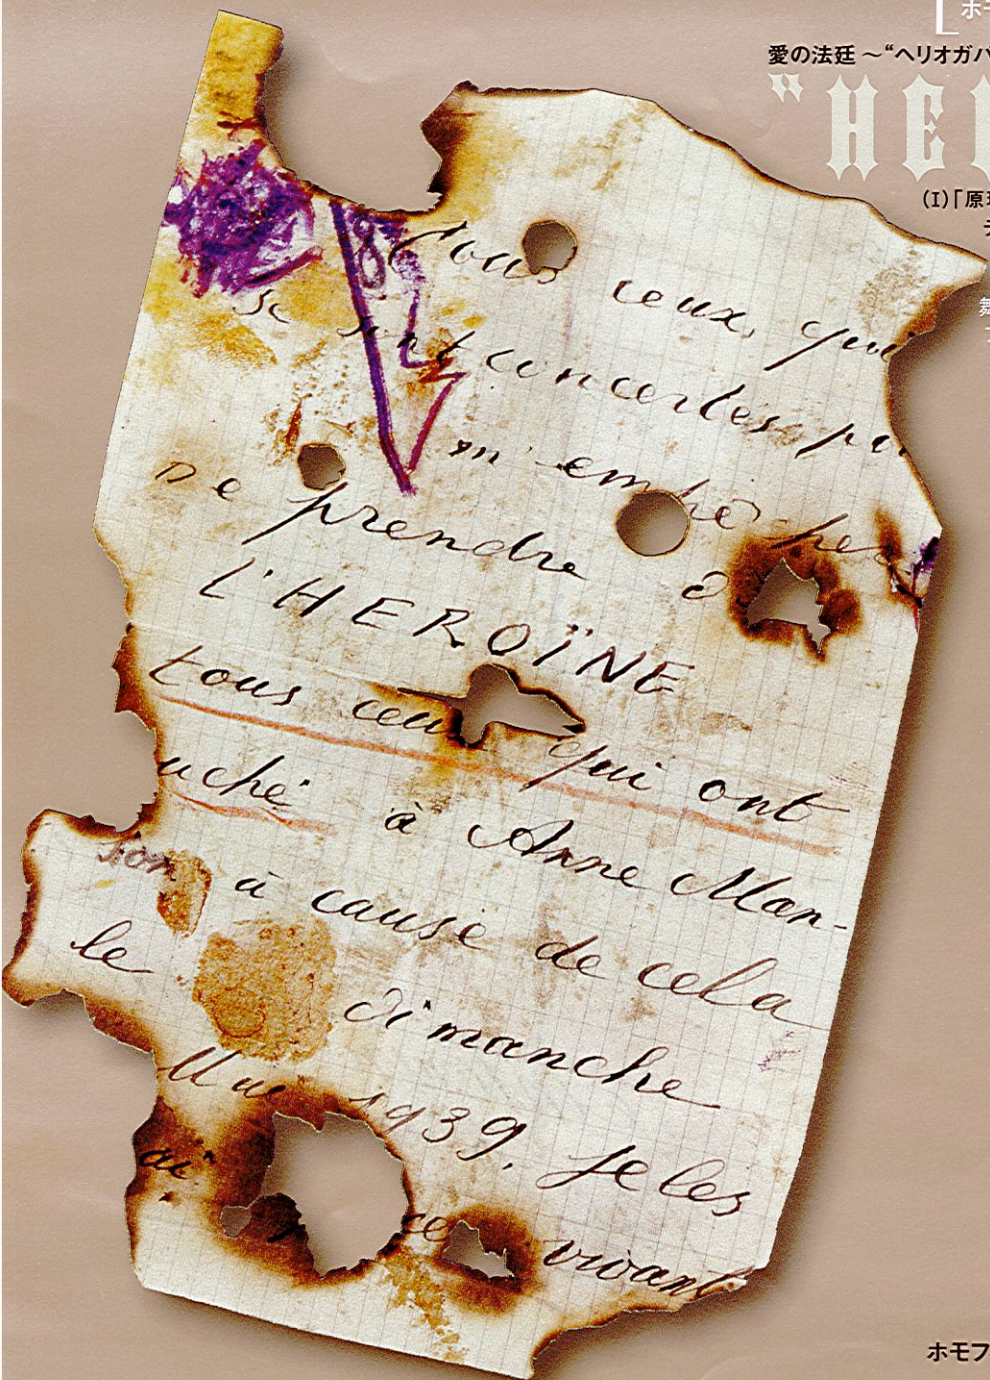 ホモ
愛の法廷 ～“ヘリオガバ
“HEL
(I)「原理
tous ceux qui
se sont concertés
m'empêcher
De prendre
L'HEROÏNE
tous ceux qui ont
uché à Anne Man-
son à cause de cela
le dimanche
Mai 1939, je les
ai vivant
ホモフ